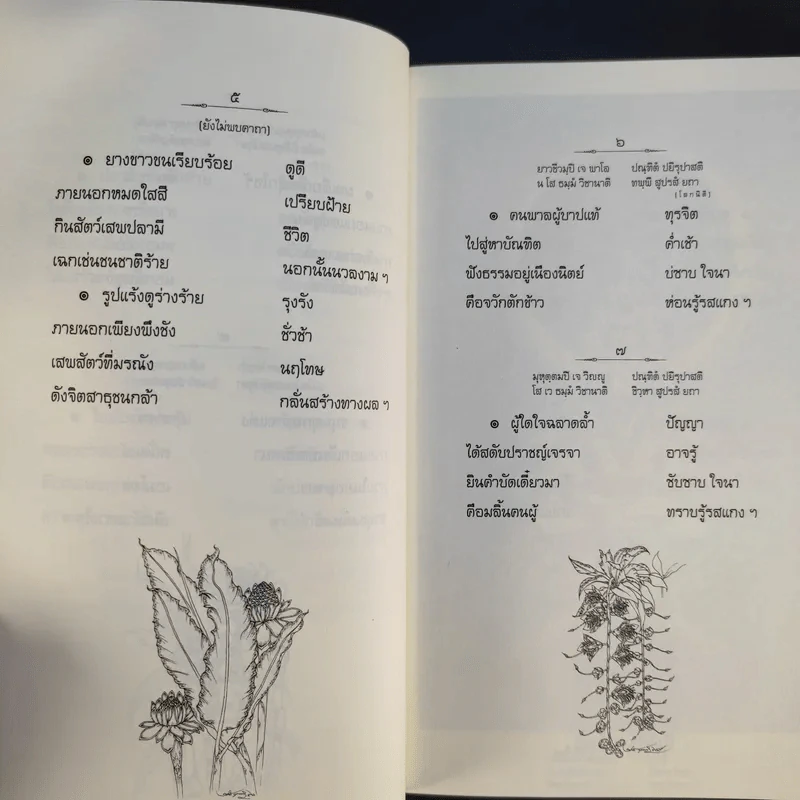 ๕
(ยังไม่พบคาถา)
๏ ยางขาวขนเรียบร้อย ดูดี
ภายนอกหมดใสสี เปรียบฝ้าย
กินสัตว์เสพปลามี ชีวิต
เฉกเช่นชนชาติร้าย นอกนั้นนวลงาม ฯ
๏ รูปแร้งดูร่างร้าย รุงรัง
ภายนอกเพียงพึงชัง ชั่วช้า
เสพสัตว์ที่มรณัง นฤโทษ
ดังจิตสาธุชนกล้า กลั่นสร้างทางผล ฯ
๖
ยาวชีวมฺปิ เจ พาโล ปณฺฑิตํ ปยิรุปาสติ
น โส ธมฺมํ วิชานาติ ทพฺพี สูปรสํ ยถา
(โลกนิติ)
๏ คนพาลผู้บาปแท้ ทุรจิต
ไปสู่หาบัณฑิต ค่ำเช้า
ฟังธรรมอยู่เนืองนิตย์ บ่ซาบ ใจนา
คือจวักตักข้าว ห่อนรู้รสแกง ฯ
๗
มุหุตฺตมปิ เจ วิญฺญู ปณฺฑิตํ ปยิรุปาสติ
โส เว ธมฺมํ วิชานาติ ชิวฺหา สูปรสํ ยถา
๏ ผู้ใดใจฉลาดล้ำ ปัญญา
ได้สดับปราชญ์เจรจา อาจรู้
ยินคำบัดเดี๋ยวมา ซับซาบ ใจนา
คือมลิ้นคนผู้ ทราบรู้รสแกง ฯ